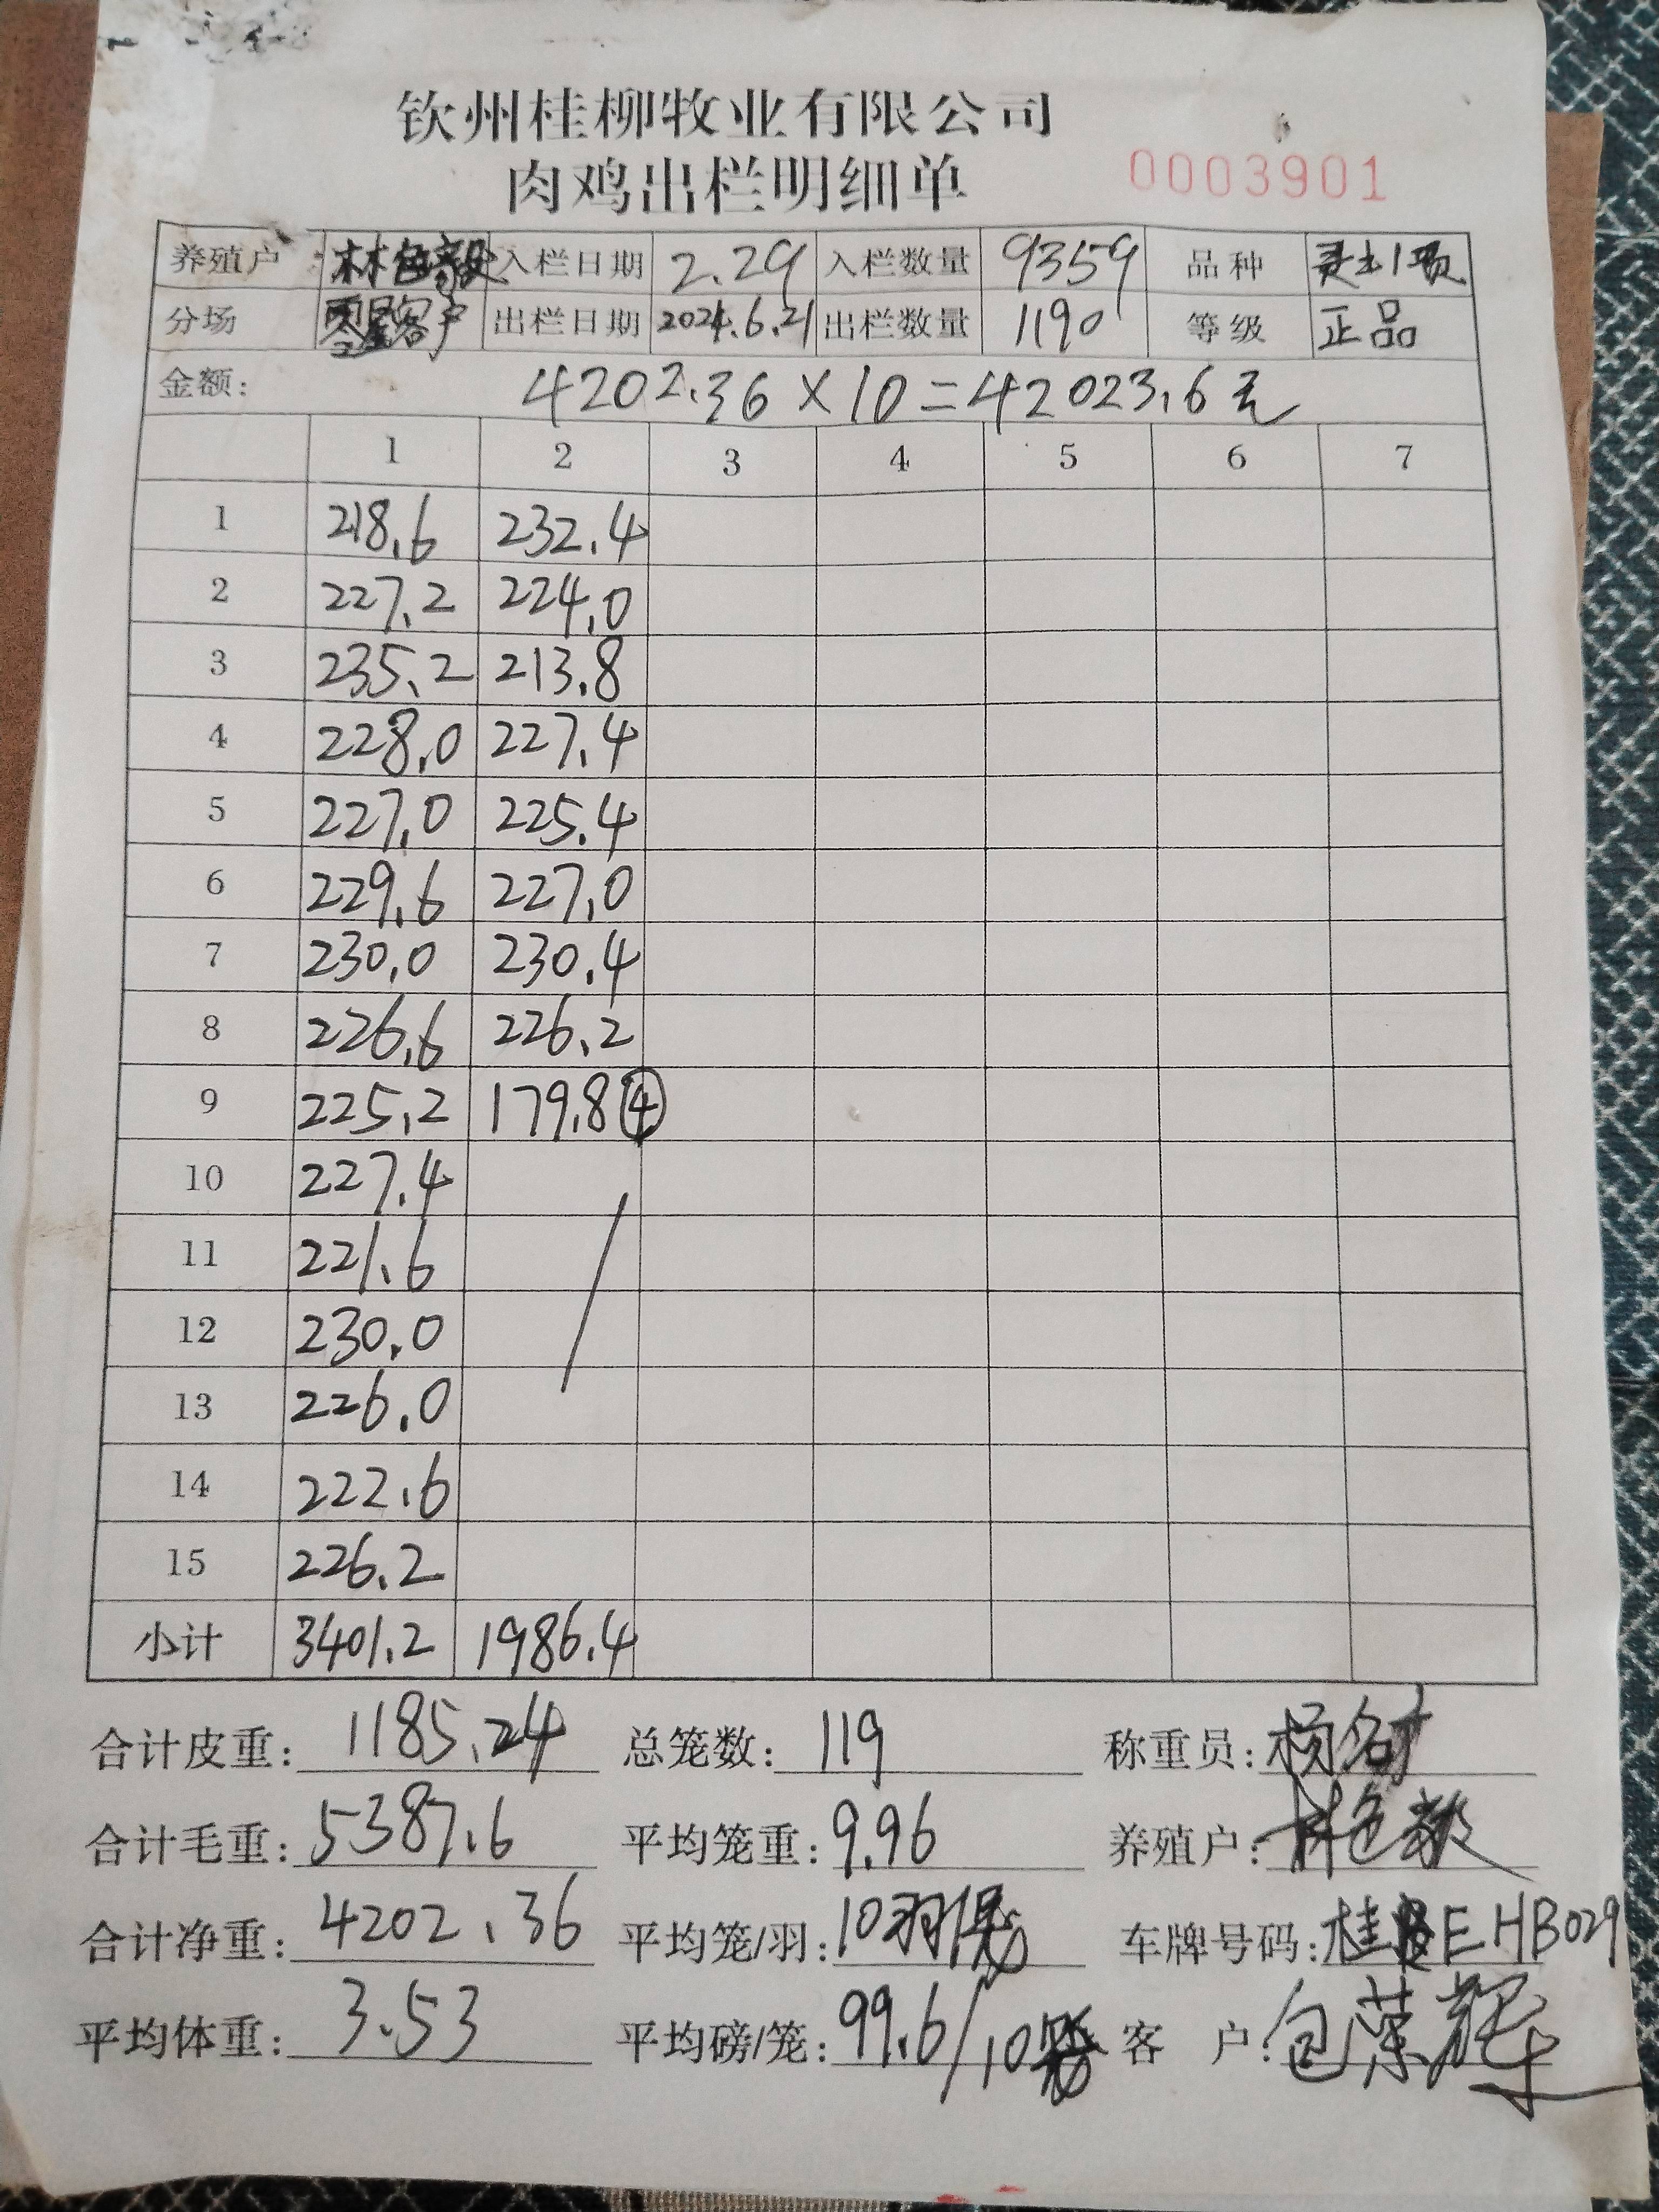 钦州桂柳牧业有限公司
肉鸡出栏明细单 0003901
养殖户 林色毅 入栏日期 2.29 入栏数量 9359 品种 灵土1项
分场 零星客户 出栏日期 2024.6.21 出栏数量 1190 等级 正品
金额: 4202.36×10=42023.6元
1 2 3 4 5 6 7
1 218.6 232.4
2 227.2 224.0
3 235.2 213.8
4 228.0 227.4
5 227.0 225.4
6 229.6 227.0
7 230.0 230.4
8 226.6 226.2
9 225.2 179.8 ④
10 227.4
11 221.6
12 230.0
13 226.0
14 222.6
15 226.2
小计 3401.2 1986.4
合计皮重: 1185.24 总笼数: 119 称重员: 杨
合计毛重: 5387.6 平均笼重: 9.96 养殖户: 林色毅
合计净重: 4202.36 平均笼/羽: 10羽 车牌号码: 桂EHB029
平均体重: 3.53 平均磅/笼: 99.6/10笼 客户: 包荣辉